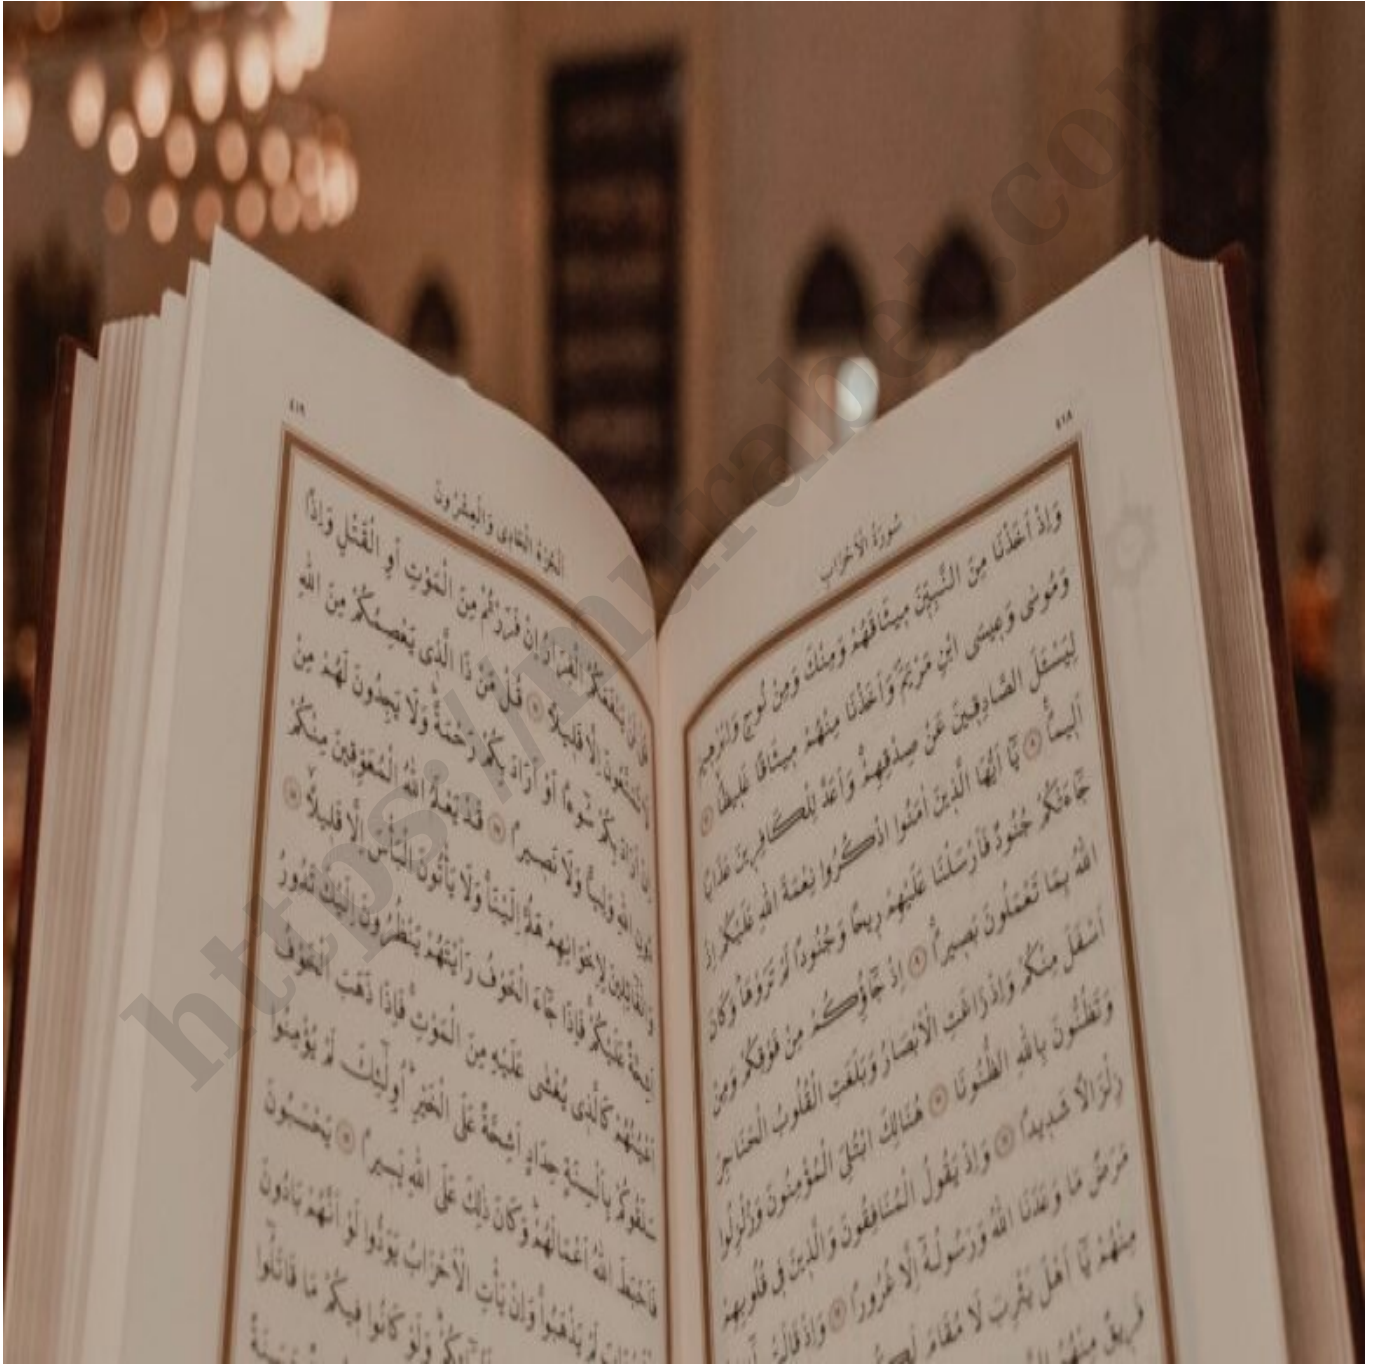 ٤١٨
سُورَةُ الْاَحْزَابِ
وَاِذْ اَخَذْنَا مِنَ النَّبِيّنَ مِيثَاقَهُمْ وَمِنْكَ وَمِنْ نُوحٍ وَاِبْرٰهِيمَ
وَمُوسٰى وَعِيسَى ابْنِ مَرْيَمَ وَاَخَذْنَا مِنْهُمْ مِيثَاقًا غَلِيظًا ۝٧
لِيَسْـَٔلَ الصَّادِقِينَ عَنْ صِدْقِهِمْ وَاَعَدَّ لِلْكَافِرِينَ عَذَابًا
اَلِيمًا ۝٨ يَٓا اَيُّهَا الَّذِينَ اٰمَنُوا اذْكُرُوا نِعْمَةَ اللّٰهِ عَلَيْكُمْ اِذْ
جَٓاءَتْكُمْ جُنُودٌ فَاَرْسَلْنَا عَلَيْهِمْ رِيحًا وَجُنُودًا لَمْ تَرَوْهَا وَكَانَ
اللّٰهُ بِمَا تَعْمَلُونَ بَصِيرًا ۝٩ اِذْ جَٓاؤُكُمْ مِنْ فَوْقِكُمْ وَمِنْ
اَسْفَلَ مِنْكُمْ وَاِذْ زَاغَتِ الْاَبْصَارُ وَبَلَغَتِ الْقُلُوبُ الْحَنَاجِرَ
وَتَظُنُّونَ بِاللّٰهِ الظُّنُونَا ۝١٠ هُنَالِكَ ابْتُلِيَ الْمُؤْمِنُونَ وَزُلْزِلُوا
زِلْزَالًا شَدِيدًا ۝١١ وَاِذْ يَقُولُ الْمُنَافِقُونَ وَالَّذِينَ فِي قُلُوبِهِمْ
مَرَضٌ مَا وَعَدَنَا اللّٰهُ وَرَسُولُهُٓ اِلَّا غُرُورًا ۝١٢ وَاِذْ قَالَتْ
مِنْهُمْ يَٓا اَهْلَ يَثْرِبَ لَا مُقَامَ
فَرِيقٌ مِنْهُمُ
٤١٩
اَلْجُزْءُ الْحَادِي وَالْعِشْرُونَ
قُلْ لَنْ يَنْفَعَكُمُ الْفِرَارُ اِنْ فَرَرْتُمْ مِنَ الْمَوْتِ اَوِ الْقَتْلِ وَاِذًا
لَا تُمَتَّعُونَ اِلَّا قَلِيلًا ۝١٦ قُلْ مَنْ ذَا الَّذِي يَعْصِمُكُمْ مِنَ اللّٰهِ
اِنْ اَرَادَ بِكُمْ سُٓوءًا اَوْ اَرَادَ بِكُمْ رَحْمَةً وَلَا يَجِدُونَ لَهُمْ مِنْ
دُونِ اللّٰهِ وَلِيًّا وَلَا نَصِيرًا ۝١٧ قَدْ يَعْلَمُ اللّٰهُ الْمُعَوِّقِينَ مِنْكُمْ
وَالْقَٓائِلِينَ لِاِخْوَانِهِمْ هَلُمَّ اِلَيْنَا وَلَا يَأْتُونَ الْبَأْسَ اِلَّا قَلِيلًا ۝١٨
اَشِحَّةً عَلَيْكُمْ فَاِذَا جَٓاءَ الْخَوْفُ رَاَيْتَهُمْ يَنْظُرُونَ اِلَيْكَ تَدُورُ
اَعْيُنُهُمْ كَالَّذِي يُغْشٰى عَلَيْهِ مِنَ الْمَوْتِ فَاِذَا ذَهَبَ الْخَوْفُ
سَلَقُوكُمْ بِاَلْسِنَةٍ حِدَادٍ اَشِحَّةً عَلَى الْخَيْرِ اُو۬لٰٓئِكَ لَمْ يُؤْمِنُوا
فَاَحْبَطَ اللّٰهُ اَعْمَالَهُمْ وَكَانَ ذٰلِكَ عَلَى اللّٰهِ يَسِيرًا ۝١٩ يَحْسَبُونَ
الْاَحْزَابَ لَمْ يَذْهَبُوا وَاِنْ يَأْتِ الْاَحْزَابُ يَوَدُّوا لَوْ اَنَّهُمْ بَادُونَ
وَلَوْ كَانُوا فِيكُمْ مَا قَاتَلُٓوا
https://murrabet.com